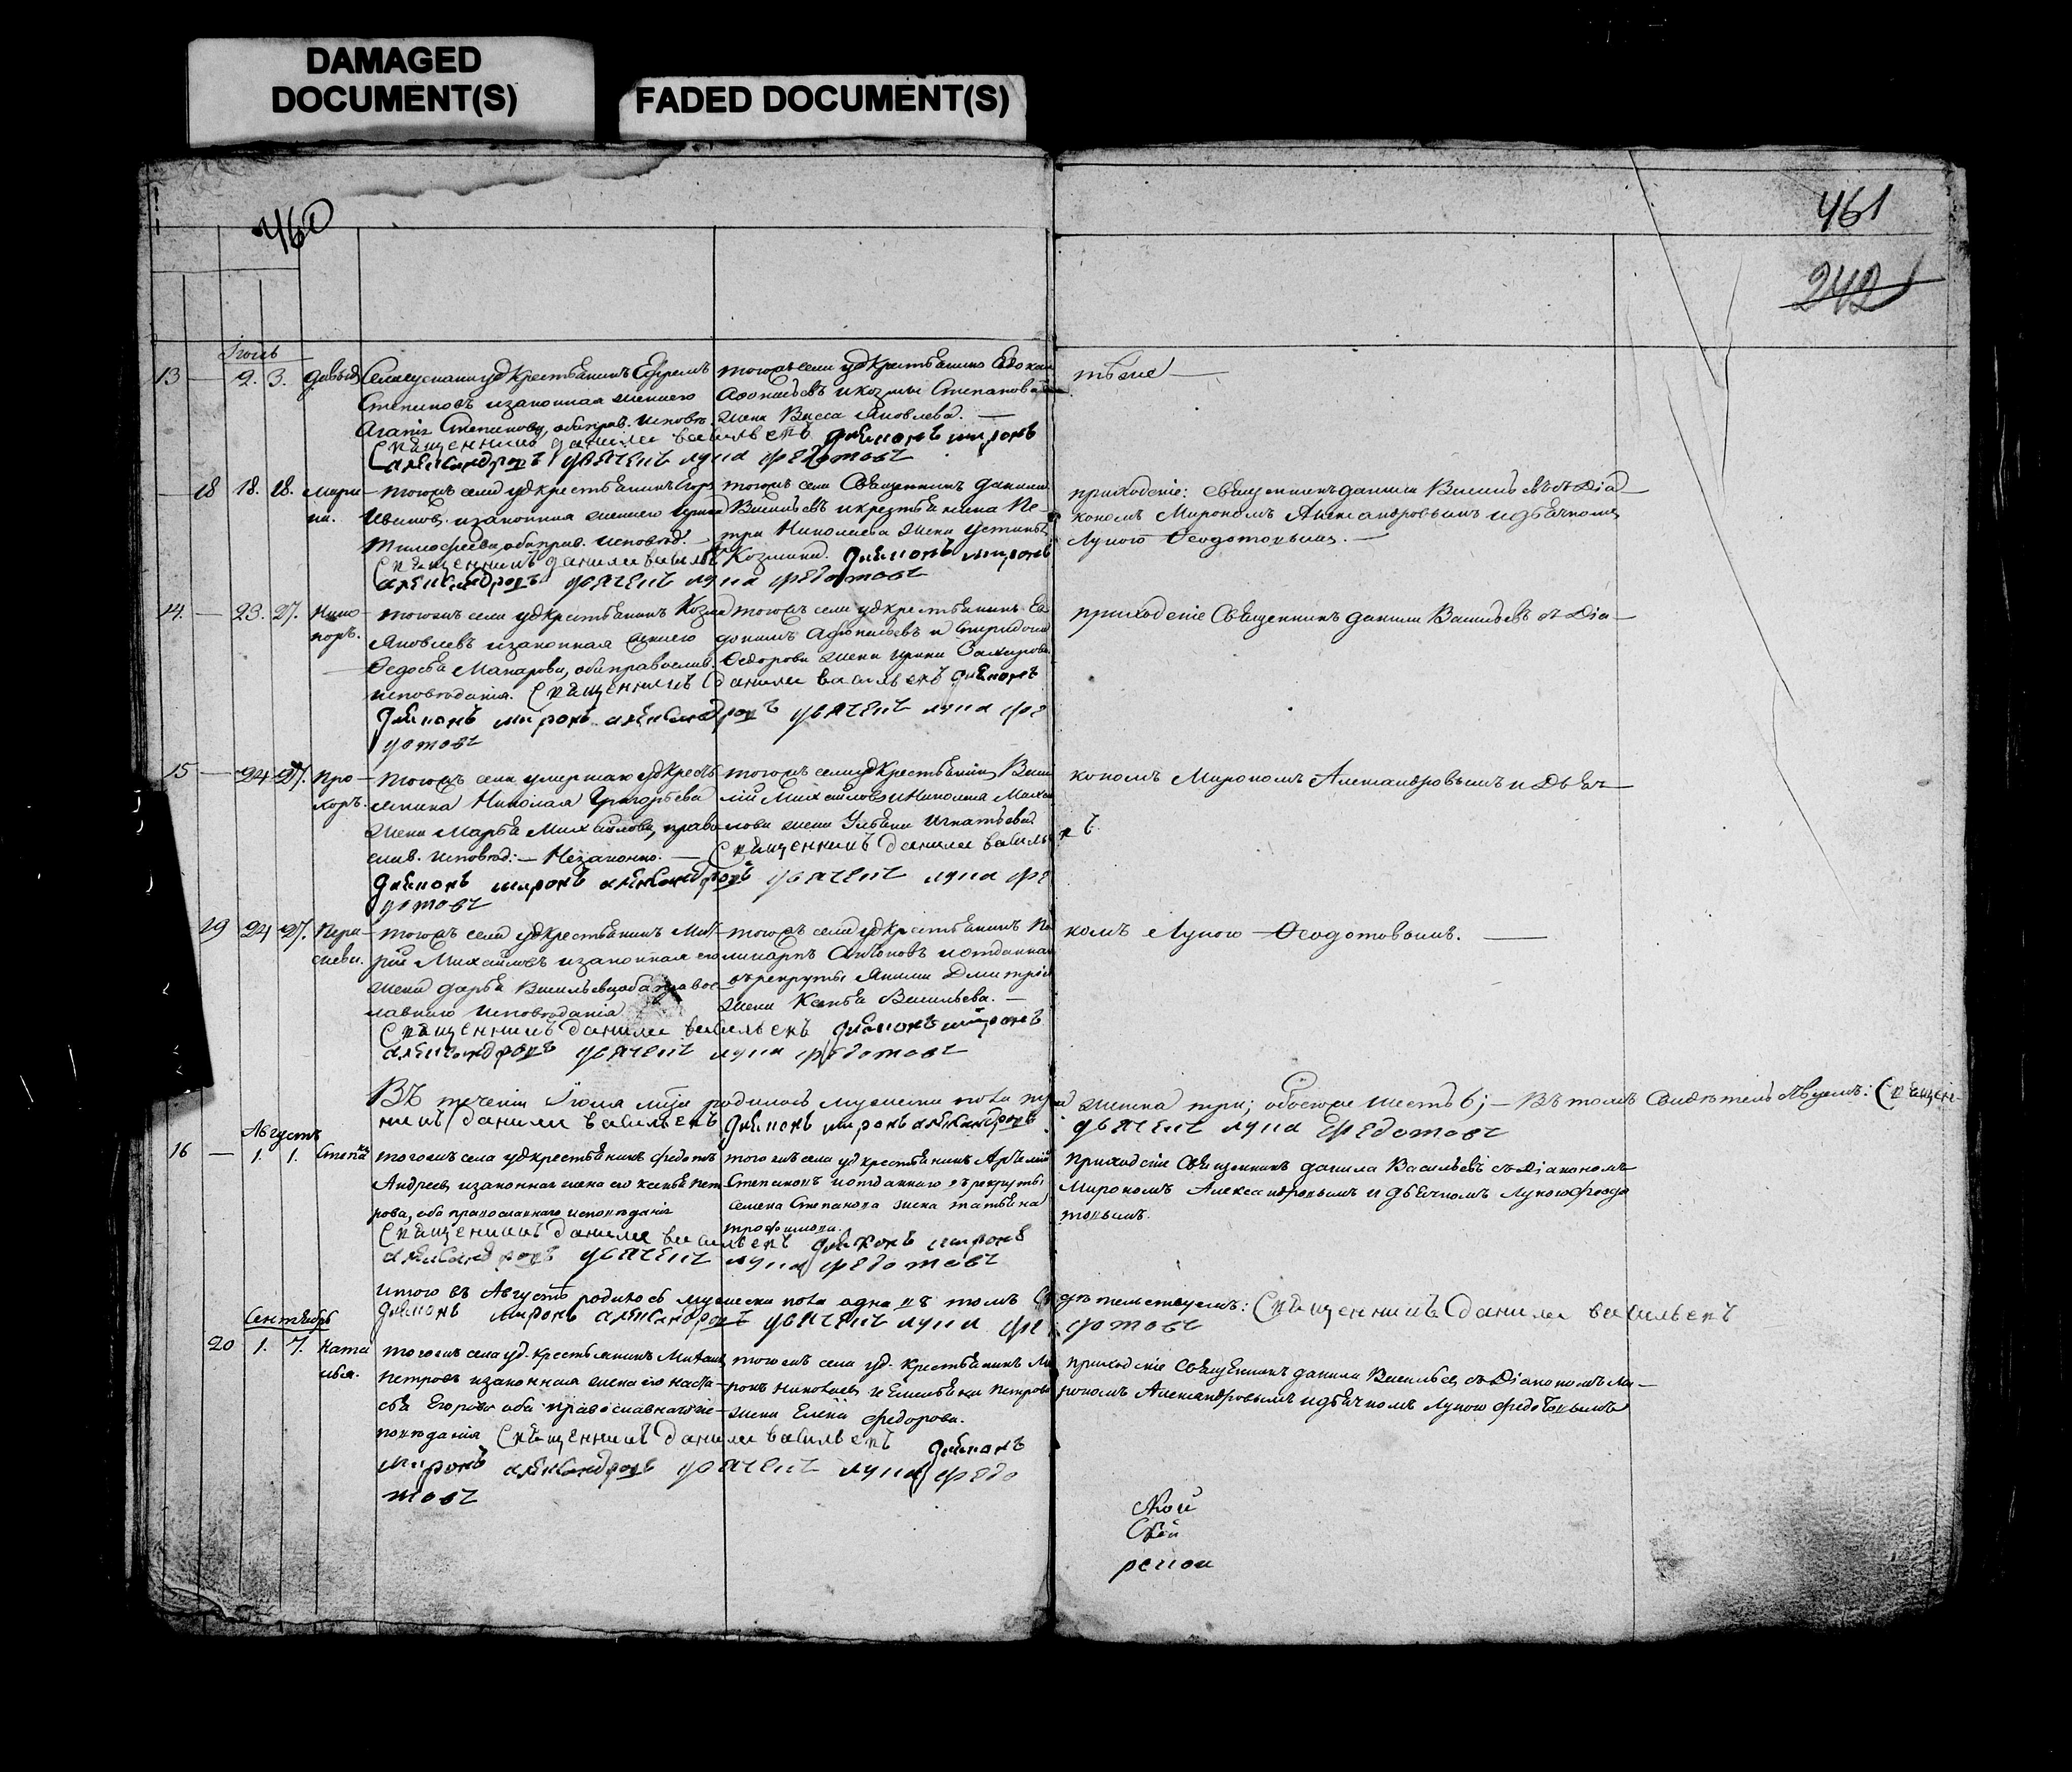 DAMAGED
DOCUMENT(S)
FADED DOCUMENT(S)
460
461
242
Іюль
13 — 2. 3. Давыдъ
крестьянинъ Ефремъ
Степановъ и законная жена его
Степанова, оба прав. исповѣ.
Священникъ Данила Васильевъ Диаконъ Миронъ
Александровъ Дьячекъ Лука Федотовъ
тогожъ села уд крестьянина
и Козмы Степанова
жена Васса Яковлева. —
тѣже —
18 18. 18. Мари-
на.
тогожъ села уд крестьянинъ
Ивановъ и законная жена его
Тимофеева, оба прав. исповѣд. —
Священникъ Данила Васильевъ
Александровъ Дьячекъ Лука Федотовъ
тогожъ села Священникъ Данила
Васильевъ и крестьянина Пе-
тра Николаева жена Устинья
Козмина. Диаконъ Миронъ
приходскіе: священникъ Данила Васильевъ съ Діа-
кономъ Мирономъ Александровымъ и дьячкомъ
Лукою Ѳеодотовымъ. —
14. — 23. 27. Ника-
норъ.
тогожъ села уд крестьянинъ Козма
Яковлевъ и законная жена его
Федосья Макарова, оба православ.
исповѣданія. Священникъ Данила Васильевъ Диаконъ
Диаконъ Миронъ Александровъ Дьячекъ Лука Фе
дотовъ
тогожъ села уд крестьянинъ Ев-
докимъ Афонасьевъ и Спиридона
Ѳедорова жена Ирина Захарова.
приходскіе Священникъ Данила Васильевъ съ Діа-
15 — 24 27. Про-
хоръ.
тогожъ села умершаго уд кресть
янина Николая Григорьева
жена Марья Михайлова, право
слав. исповѣд: — Незаконно. —
тогожъ села уд крестьянинъ Васи
лій Михайловъ и Николая Михай
лова жена Ульяна Игнатьева
Священникъ Данила Василье въ
Диаконъ Миронъ Александровъ Дьячекъ Лука Фе
дотовъ
кономъ Мирономъ Александровымъ и Дьяч-
19 24 27. Пара-
скева.
тогожъ села уд крестьянинъ
Михайловъ и законная его
жена Дарья Васильева, оба правос-
лавнаго исповѣданія
Священникъ Данила Васильевъ Диаконъ Миронъ
Александровъ Дьячекъ Лука Федотовъ
тогожъ села уд крестьянинъ По
ликарпъ Антоновъ и отданнаго
въ рекруты Якима Дмитріева
жена Ксенья Васильева. —
комъ Лукою Ѳеодотовымъ. —
Въ теченіи Іюля мца родилось мужеска пола три женска три; обоего шесть 6; — Въ томъ Свидѣтельствуемъ: Священ-
никъ Данила Васильевъ Диаконъ Миронъ Александровъ Дьячекъ Лука Федотовъ
Августъ
16 — 1. 1. Степанъ
тогожъ села уд крестьянинъ Федотъ
Андреевъ и законная жена его Ксенья Пет
рова, оба православнаго исповѣданія
Священникъ Данила Васильевъ Диаконъ Миронъ
Александровъ Дьячекъ Лука Федотовъ
тогожъ села уд крестьянинъ
Степановъ и отданнаго въ рекруты
Семена Степанова жена Татьяна
Трофимова.
приходскіе Священникъ Данила Васильевъ съ Діакономъ
Мирономъ Александровымъ и дьячкомъ Лукою Феодо
товымъ.
итого въ Августѣ родилось мужеска пола одна въ томъ Свидѣтельствуемъ: Священникъ Данила Васильевъ
Диаконъ Миронъ Александровъ Дьячекъ Лука Федотовъ
Сентябрь
20 1. 7. Ната
лья.
тогожъ села уд. крестьянинъ
Петровъ и законная жена его Наста-
сья Егорова оба православнаго ис-
повѣданія Священникъ Данила Васильевъ Диаконъ
Миронъ Александровъ Дьячекъ Лука Федо
товъ
тогожъ села уд. крестьянинъ Ми
ронъ Николаевъ и Петрова
жена Елена Федорова.
приходскіе Священникъ Данила Васильевъ съ Діакономъ Ми-
рономъ Александровымъ и дьячкомъ Лукою Федотовымъ